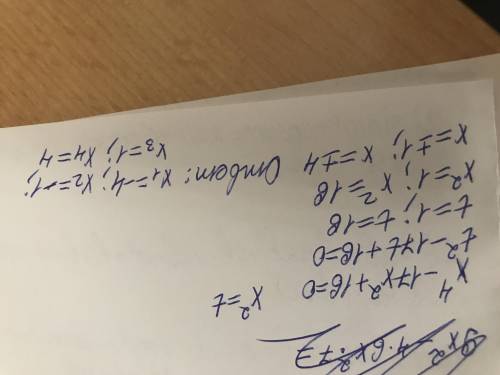 x⁴ - 17x² + 16 = 0    x² = t
t² - 17t + 16 = 0
t = 1; t = 16
x² = 1; x² = 16
x = ±1; x = ±4
Ответ: x₁ = -4; x₂ = -1;
x₃ = 1; x₄ = 4